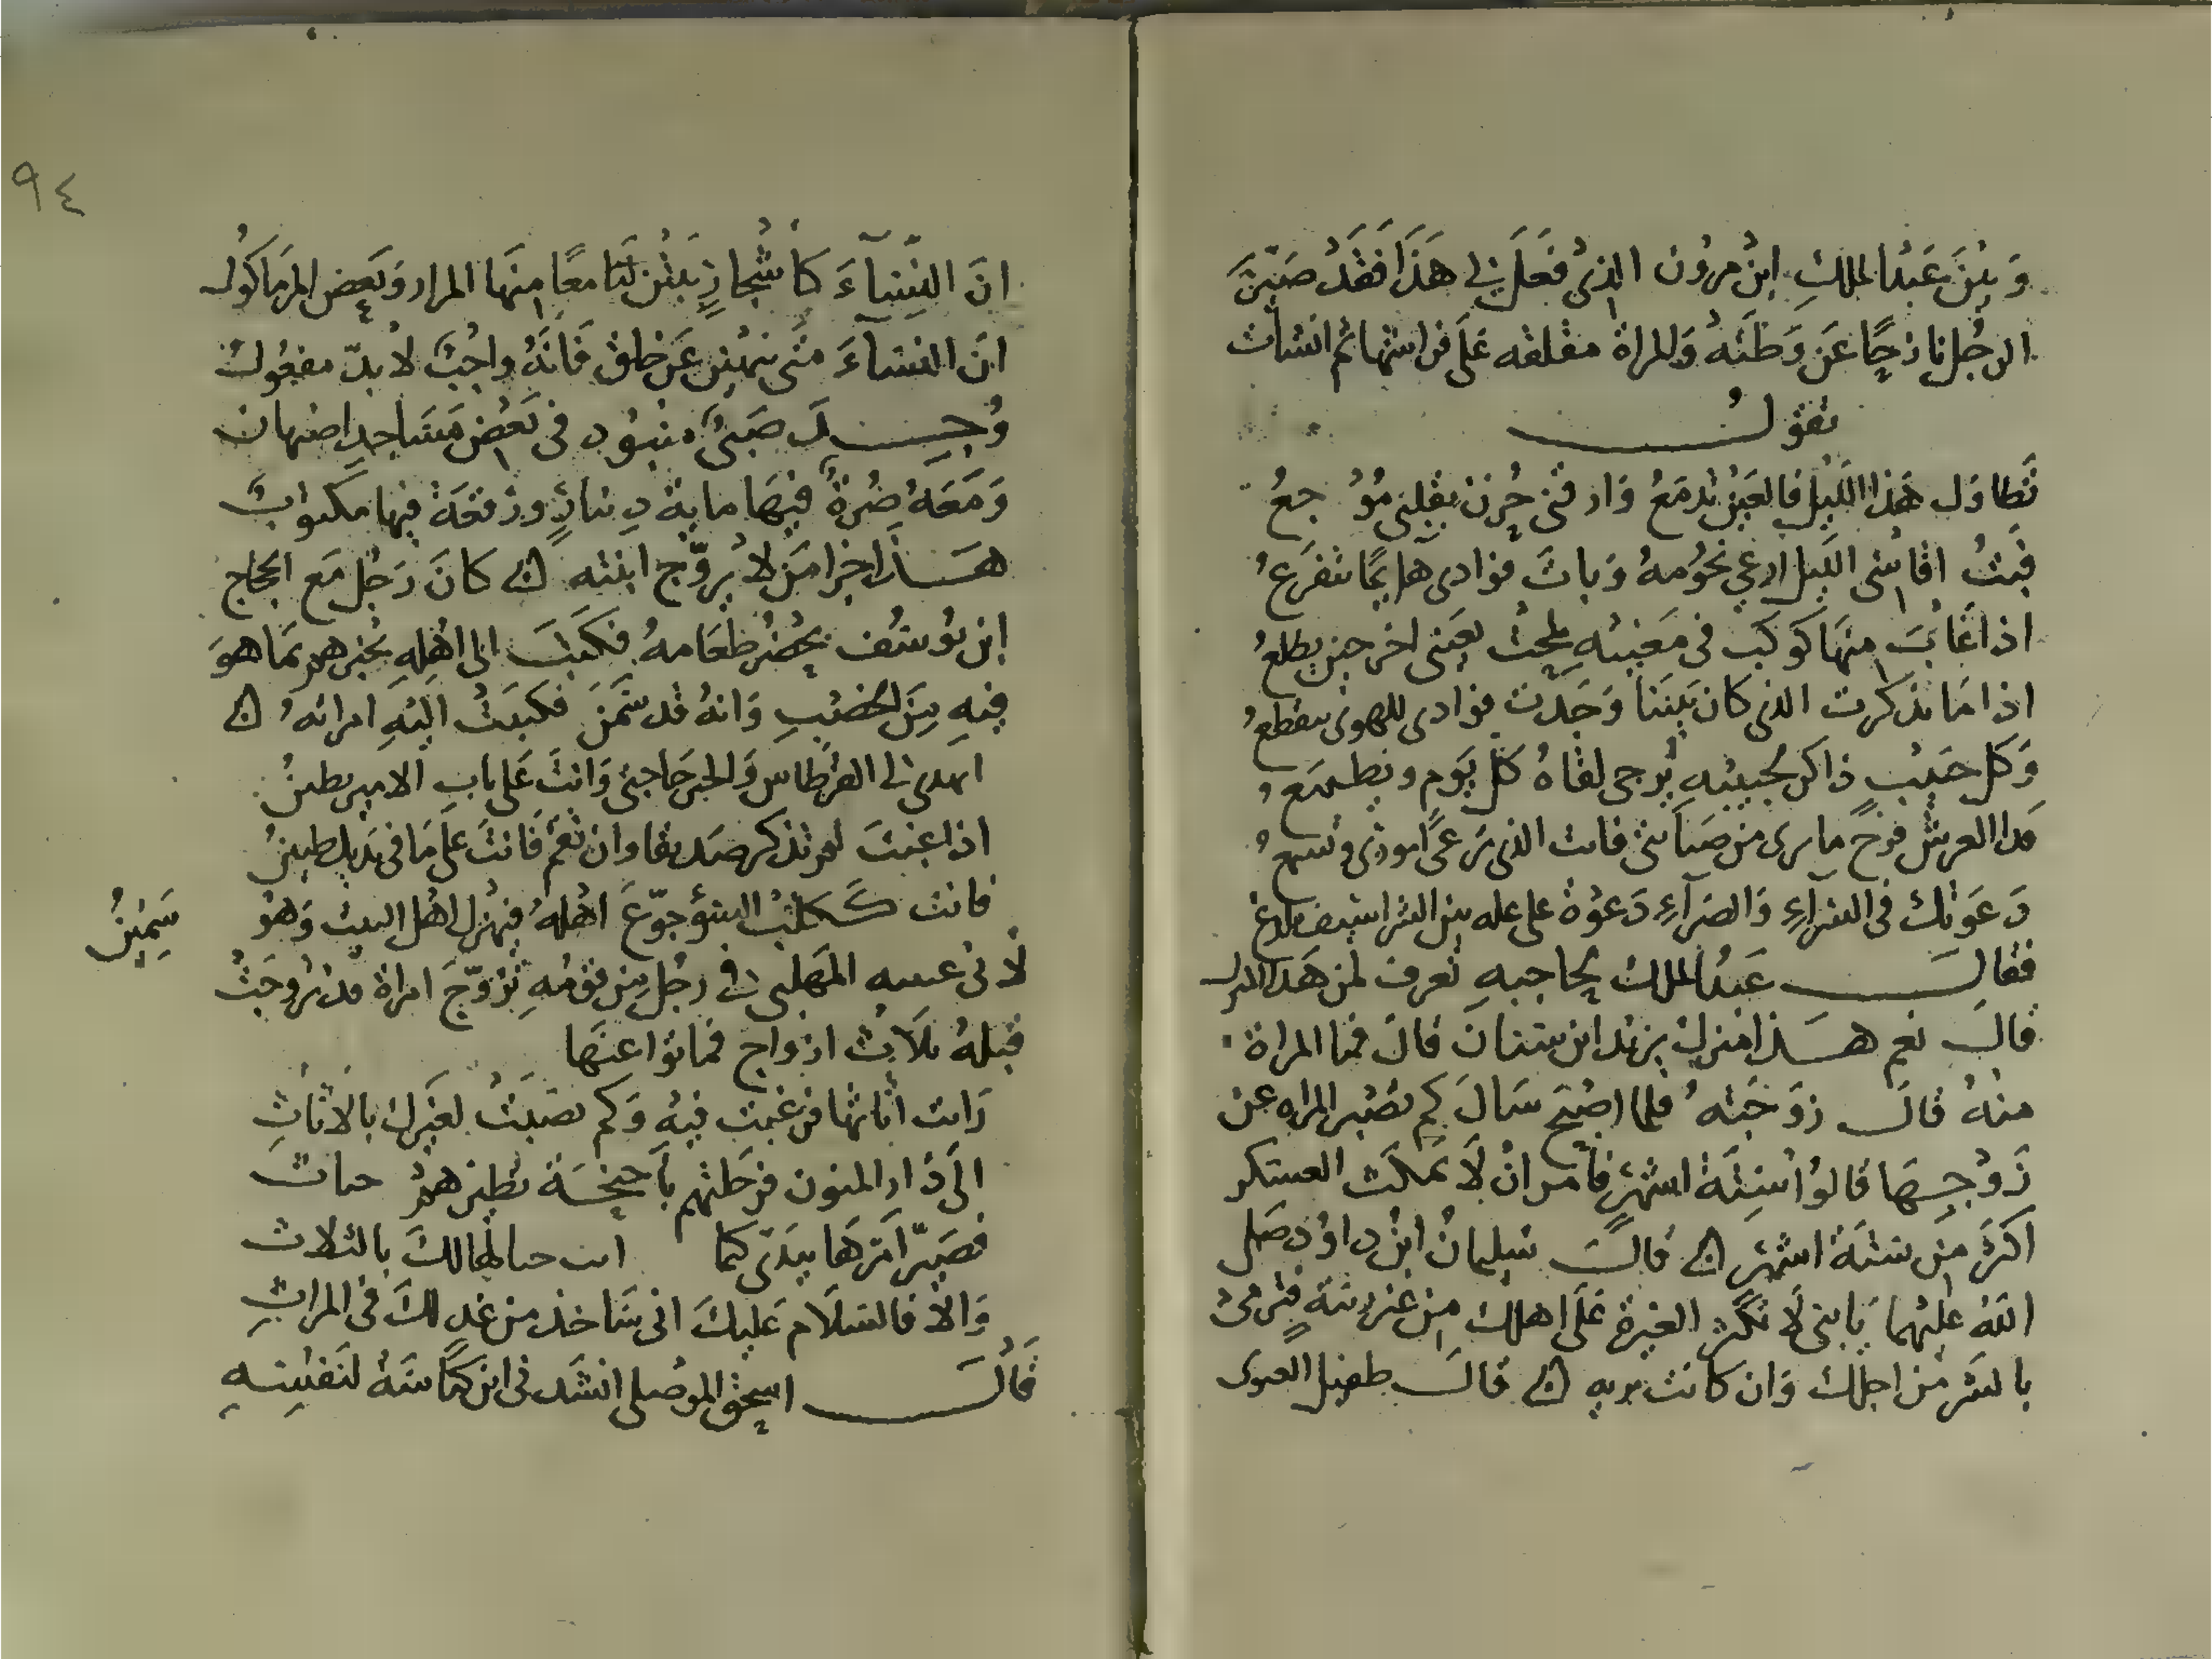 وَبَيْنَ عَبْدِ الملكِ ابْن مروُن الذِىْ فَعَلَ بِى هَذَا فَقَدْ صَيّرَ
الرجُل نازحًا عَن وَطَنَهُ وَالمراة مقلقه عَلَى فراشها ثم انشات
تقولُ
تَطاوَل هَذا اللّيْل فالعَيْن تدمَعُ وَارقنى حُزن بقلبى مُوْجعُ
فبَتُ اقاسى اللّيل ارعى نجُومهُ وَباتَ فوادى هايمًا يتفرَعُ
اذا غَابَ منهَا كوكب فى مَغيبهِ لمحتُ بعَينى اخر حين يطلعُ
اذا مَا تذكرت الذى كان بَيننَا وَجَدت فوادى للهوى يتقطعُ
وَكل حَبيْب ذاكر لحبيبْهِ يُرجى لقَاهُ كل يَوم ويَطمَعُ
ڡدا العرش فرج ما ترى من صَبابتى فانت الذى ترعَى امورى وتسمعُ
دَعَوتكَ فى السرآءِ وَالضرآءِ دَعوَة على عله بين الشراسيف تلدغُ
فقالَ عَبدُ الملك لحاجبهِ تعرف لمن هَذا المنزل
قالَ نعم هَذا منزل يزيد ابن سنَان قالَ فما المراة
منهُ قالَ زوَجَتهُ فلما اصْبَح سَالَ كم تصْبر المراه عن
زَوْجِهَا قالوُا سِتَّة اشهُر فامَر انْ لَا تمكَث العسكر
اكثرَ مِن سَتَة اشهُر ۞ قالَ سُليمانُ ابْن داوُد صَلى
اللهُ عليْهما يَا بنى لَا تكثر الغيرة عَلَى اهلك مِن غير رَيبَة فتُرمىْ
بالشر من اجلك وَان كانت بريه ۞ قالَ طفيل الغنوى
٩٤
انَ النّسآءَ كأشْجارٍ نَبَتْنَ لنَا معًا منهَا المرار وَبَعض المر مَاكوُل
انَ النسآءَ متَى ينهَيْن عَن خلق فَانَّهُ وَاجبٌ لا بُدّ مفعُولُ
وُجِدَ صَبىٌ منبوُد فى بَعْض مَسَاجدِ اصْبهان
وَمَعَهُ صُرة فيهَا ماية دِينارٍ ورقعَة فيها مكتوبٌ
هَذا جزا مَن لا يزوّج ابنته ۞ كانَ رَجُل مَع الحجاج
ابن يوُسُف يحُضرُ طعَامهُ فكتبَ الى اهْلِهِ يُخبرهمْ بمَا هوَ
فيهِ مِنَ الخصْبِ وَانهُ قد سَمنَ فكتبَتْ اليْهِ امراتهُ ۞
اتهدى لى القرْطاس وَالخبز حَاجتى وَانتَ عَلى بابِ الامير بطينُ
اذا غبْتَ لم تذكر صَديقا وان تقم فَانتَ عَلى مَا فى يَديك ضنينُ
فانت ككلبْ السوْ جوّعَ اهْلهُ فيهْزل اهْل البيت وَهوَ سَمِيْنُ
لأبى عيينه المهَلبى فى رجُل مِن قومهِ تزوّجَ امراة قد تزوجَتْ
قبلهُ ثلاث ازواج فماتوا عنهَا
رَايت اثاثها فرغبت فيْهِ وَكم نصبَتْ لغَيرك بالاثاثِ
الَى دَار المنون فرحَلتهم بأجنِحَة تطير همُ حثاث
فصَيّر امرَهَا بيَدى كما ابت حبالهَا لكَ بالثلاث
وَالا فالسَلَام عَليكَ انى سَاخذ من غد لكَ فى المراثِ
قالَ اسحق الموْصلى انشَدنى ابن كنَاسَةُ لنَفسِهِ